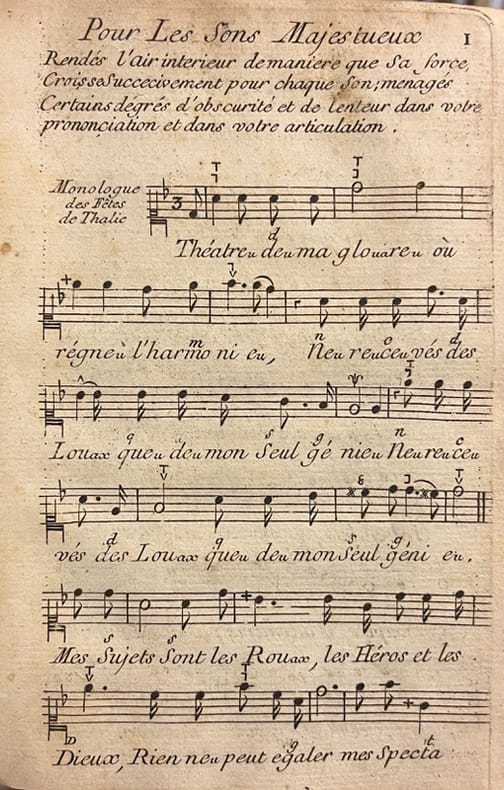 Pour Les Sons Majestueux
1
Rendés l'air interieur de maniere que Sa force,
Croisse Succecivement pour chaque Son; menagés
Certains dégrés d'obscurité et de lenteur dans votre
prononciation et dans votre articulation.
Monologue
des Fêtes
de Thalie
3
Théatreu deu ma glouareu où
régneù l'harmo ni eu, Neu reuceuvés des
Louax queu deu mon Seul gé nieu Neu reuceu
vés des Louax queu deu mon Seul géni eu.
Mes Sujets Sont les Rouax, les Héros et les
Dieux, Rien neu peut egaler mes Specta